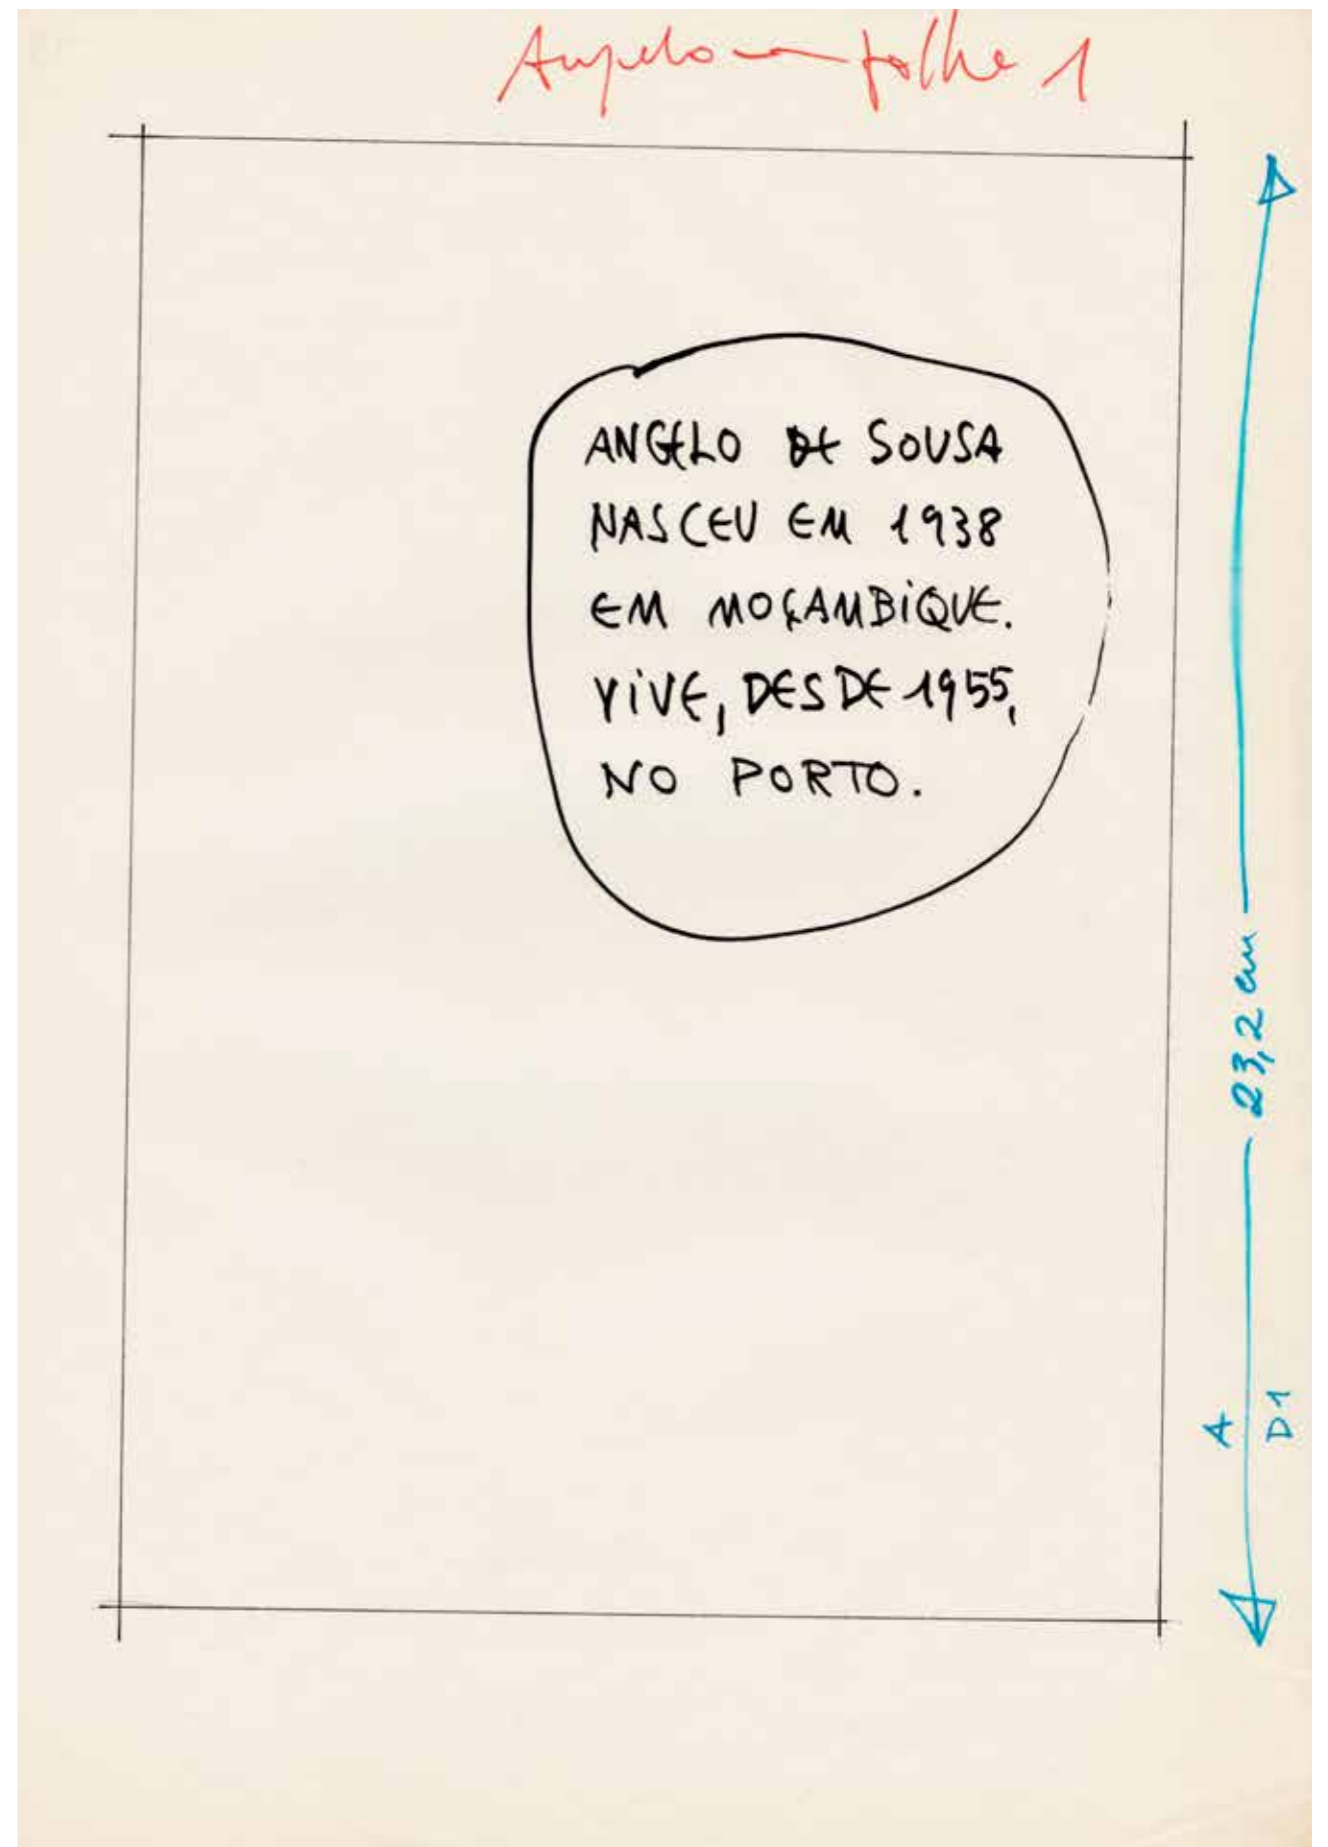 Angelo — folha 1
ANGELO DE SOUSA
NASCEU EM 1938
EM MOÇAMBIQUE.
VIVE, DESDE 1955,
NO PORTO.
23,2 cm
A
D1